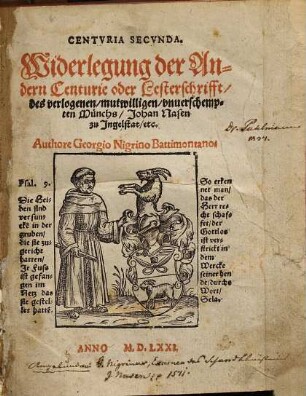 CENTVRIA SECVNDA.
Widerlegung der An-
dern Centurie oder Lesterschrifft/
des verlogenen/mutwilligen/vnuerschemp-
ten Münchs/Johan Nasen
zu Ingelstat/etc.
Authore Georgio Nigrino Battimontano.
Psal. 9.
Die Hei-
den sind
versunc
ckt in der
gruben/
die sie zu-
gericht
hatten/
Je Fuss
ist gefan-
gen im
Netz das
sie gestel-
let hatt.
So erken
net man/
das der
Herr re-
cht schaf-
fet/der
Gottlos
ist vers
strickt in
dem
Wercke
seiner hen
de/durchs
Wort/
Sela.
ANNO M. D. LXXI.